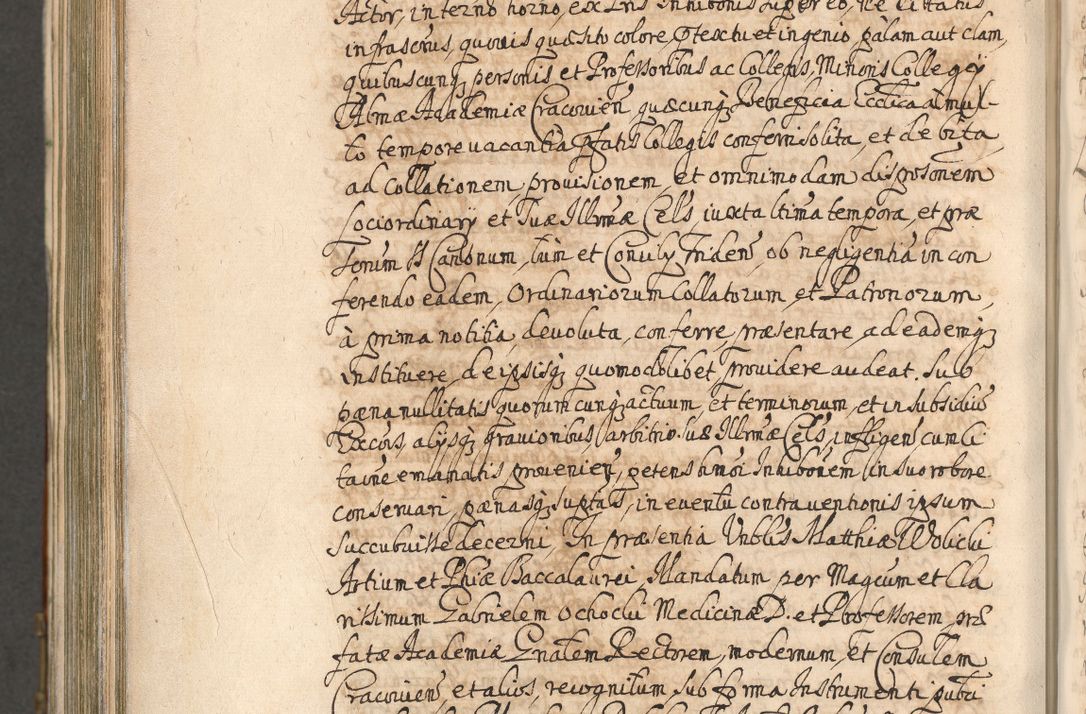 Actor, in termo horno, ex Lris Inhibonis super eo, ne citatus
infrascrus, quovis quæsito colore, ptextu et ingenio, palam aut clam,
quibuscunq personis et Professoribus ac Collegis, Minoris Collegij
Almæ Academiæ Cracovien quæcunq Beneficia Ecctica à mul-
to tempore vacantia, pfatis Collegis conferri solita, et debita,
ad Collationem, provisionem, et omnimodam disposonem
loci ordinarij et Suæ Illrmæ Cels iuxta ltima tempora, et præ
Tonum SS Canonum, tum et Concily Triden ob negligentia in con
ferendo eadem, Ordinariorum Collatorum, et Patronorum,
à prima notitia, devoluta, conferre, præsentare, ad eademq
instituere, de ipsisq quomodolibet providere audeat. Sub
pæna nullitatis quorumcunq actuum, et terminorum, et in subsidiu
Excois, alysq gravioribus, arbitrio Suæ Illrmæ Cels, infligen cum li
tacione emanatis, provenien, petens hmoi Inhibonem, in suo robore
conservari, pænasq suptas, in eventu contraventionis ipsum
succubuisse decerni, In præsentia Vnblis Matthiæ Wolicki
Artium et Phiæ Baccalaurei, Mandatum per Magcum et Cla
rissimum Gabrielem Ochocki Medicinæ D. et Professorem, præ
fatæ Academiæ Gnalem Rectorem, modernum, et Consulem
Cracovien, et alios, recognitum, sub forma Instrumenti publi